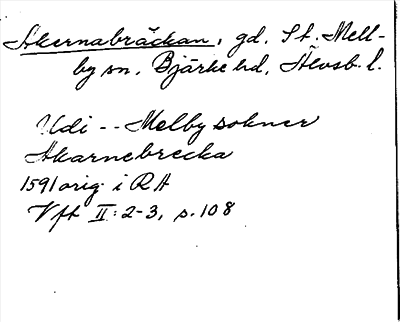 Skernabräckan, gd, St. Mell-
by sn, Bjärke hd, Älvsb. l.
Udi -- Melby sokner
Skarnebrecka
1591 orig. i RA
Vft II: 2-3, s. 108